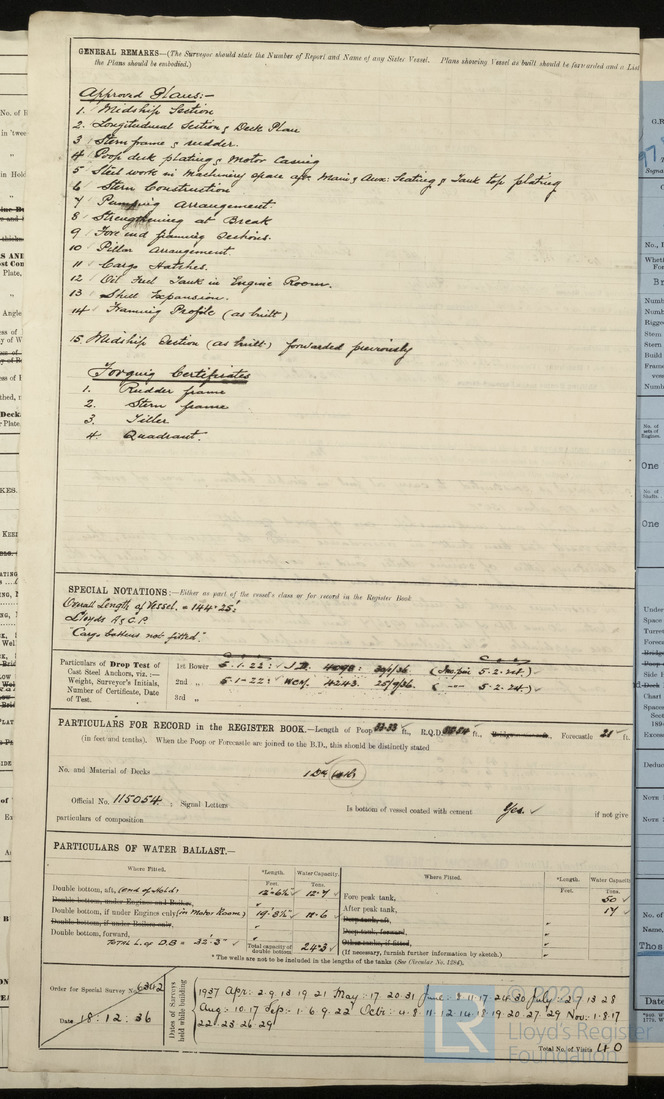 GENERAL REMARKS—(The Surveyor should state the Number of Report and Name of any Sister Vessel. Plans showing Vessel as built should be forwarded and a List
the Plans should be embodied.)
Approved Plans:—
1. Midship Section
2. Longitudinal Section & Deck Plan
3 Stern frame & rudder.
4 Poop deck plating & Motor Casing
5 Steel work in Machinery space aft, Main & Aux: Seating & Tank top plating
6 Stern Construction
7 Pumping arrangement
8 Strengthening at Break
9 Fore end framing sections.
10 Pillar arrangement.
11 Cargo Hatches.
12 Oil Fuel Tank in Engine Room.
13 Shell Expansion.
14 Framing Profile (as built)
15 Midship Section (as built) forwarded previously
Forging Certificates
1. Rudder frame
2. Stern frame
3. Tiller
4. Quadrant.
SPECIAL NOTATIONS:—Either as part of the vessel's class or for record in the Register Book
Overall Length of Vessel. = 144.25'
Lloyds A & C.P.
"Cargo battens not fitted".
Particulars of Drop Test of
Cast Steel Anchors, viz.:—
Weight, Surveyor's Initials,
Number of Certificate, Date
of Test.
1st Bower 5.1.22: J.D. 4098: 30/9/36. 5.2.21.)
2nd „ 5-1-22: WCM. 4243. 25/9/36. ( — 5-2-24.)
3rd „
PARTICULARS FOR RECORD in the REGISTER BOOK.—Length of Poop ft., R.Q.D. ft., Forecastle 21 ft.
(in feet and tenths). When the Poop or Forecastle are joined to the B.D., this should be distinctly stated
No. and Material of Decks 1 Dk
Official No. 115054 ; Signal Letters Is bottom of vessel coated with cement Yes. if not give
particulars of composition
PARTICULARS OF WATER BALLAST.—
Where Fitted. *Length. Water Capacity. Where Fitted. *Length. Water Capacity
Feet. Tons. Feet. Tons.
Double bottom, aft, (end of Hold) 12'-6½" 12.7 Fore peak tank, 50
Double bottom, under Engines and Boilers, „ After peak tank, 17
Double bottom, if under Engines only (in Motor Room) 19'.8½" 11.6 Deep tank, aft,
Double bottom, if under Boilers only, „ Deep tank, forward,
Double bottom, forward, „ Other tanks, if fitted,
TOTAL L. of D.B = 32'3" Total capacity of double bottom 24.3 (If necessary, furnish further information by sketch.)
* The wells are not to be included in the lengths of the tanks (See Circular No. 1284).
Order for Special Survey No. 6362
Date 18.12.36
Dates of Surveys held while building
1937 Apr: 2.9.13.19.21 May: 17.20.31 June: 8.11.17.24.30 July: 2.7.13.28
Aug: 10.17 Sep: 1.6.9.22 Octr: 4.8.11.12.14.18.19.20.27.29 Nov: 1.8.17
22.23.26.29
Total No. of Visits 40
© 2020
Lloyd's Register
Foundation